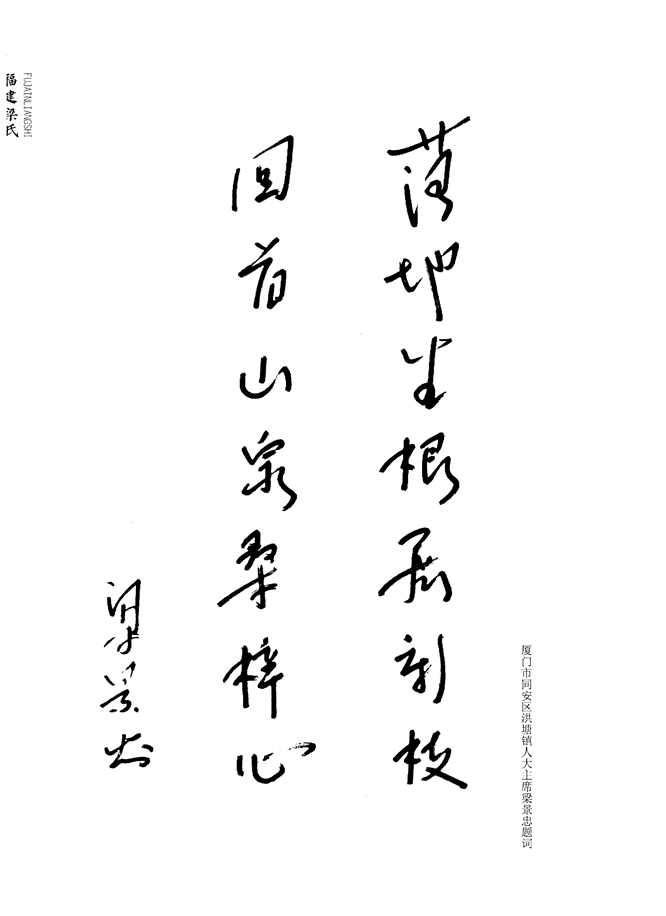 福建梁氏
FUJAINLIANGSHI
落地生根展新枝
回首山泉桑梓心
梁景忠
厦门市同安区洪塘镇人大主席梁景忠题词